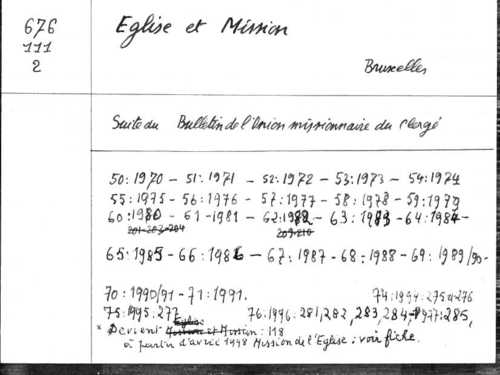 676
111
2
Eglise et Mission
Bruxelles
Suite du Bulletin de l'Union missionnaire du Clergé
50:1970 - 51:1971 - 52:1972 - 53:1973 - 54:1974
55:1975 - 56:1976 - 57:1977 - 58:1978 - 59:1979
60:1980 - 61-1981 - 62:1982 - 63:1983 - 64:1984-
201-203-204 209-210
65:1985 - 66:1986 - 67:1987 - 68:1988 - 69:1989/90-
70:1990/91 - 71:1991. 74:1994:275-276
75:1995:277 76:1996:281,282,283,284, 77:285,
* Devient Eglise et Mission: 118
à partir d'avril 1998 Mission de l'Eglise: voir fiche.